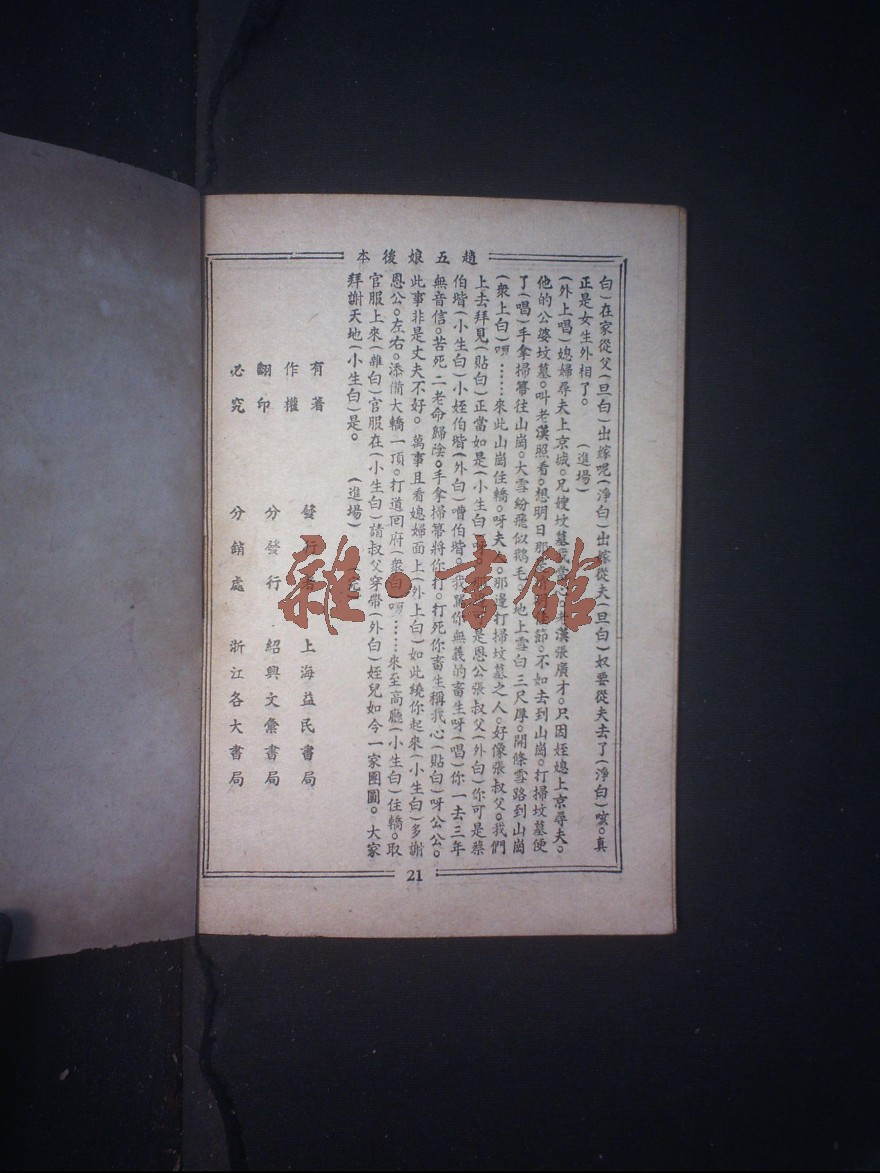 趙五娘後本
白)在家從父(旦白)出嫁呢(淨白)出嫁從夫(旦白)奴要從夫去了(淨白)咳。真
正是女生外相了。(進場)
(外上唱)媳婦尋夫上京城。兄嫂坟墓我當心。老漢張廣才。只因姪媳上京尋夫。
他的公婆坟墓。叫老漢照看。想明日那 節。不如去到山崗。打掃坟墓便
了(唱)手拿掃箒往山崗。大雪紛飛似鵝毛。地上雪白三尺厚。開條雪路到山崗
(衆上白)唄……來此山崗住轎。呀夫人那邊打掃坟墓之人。好像張叔父。我們
上去拜見(貼白)正當如是(小生白) 是恩公張叔父(外白)你可是蔡
伯喈(小生白)小姪伯喈(外白)嘈伯喈。我罵你無義的畜生呀(唱)你一去三年
無音信。苦死二老命歸陰。手拿掃箒將你打。打死你畜生稱我心(貼白)呀公公。
此事非是丈夫不好。萬事且看媳婦面上(外上白)如此繞你起來(小生白)多謝
恩公。左右。添備大轎一頂。打道回府(衆白)唄……來至高廳(小生白)住轎。取
官服上來(雜白)官服在(小生白)請叔父穿帶(外白)姪兒如今一家團圓。大家
拜謝天地(小生白)是。(進場)(完)
有著
作權
翻印
必究
發行者 上海益民書局
分發行 紹興文彙書局
分銷處 浙江各大書局
21
雜·書館